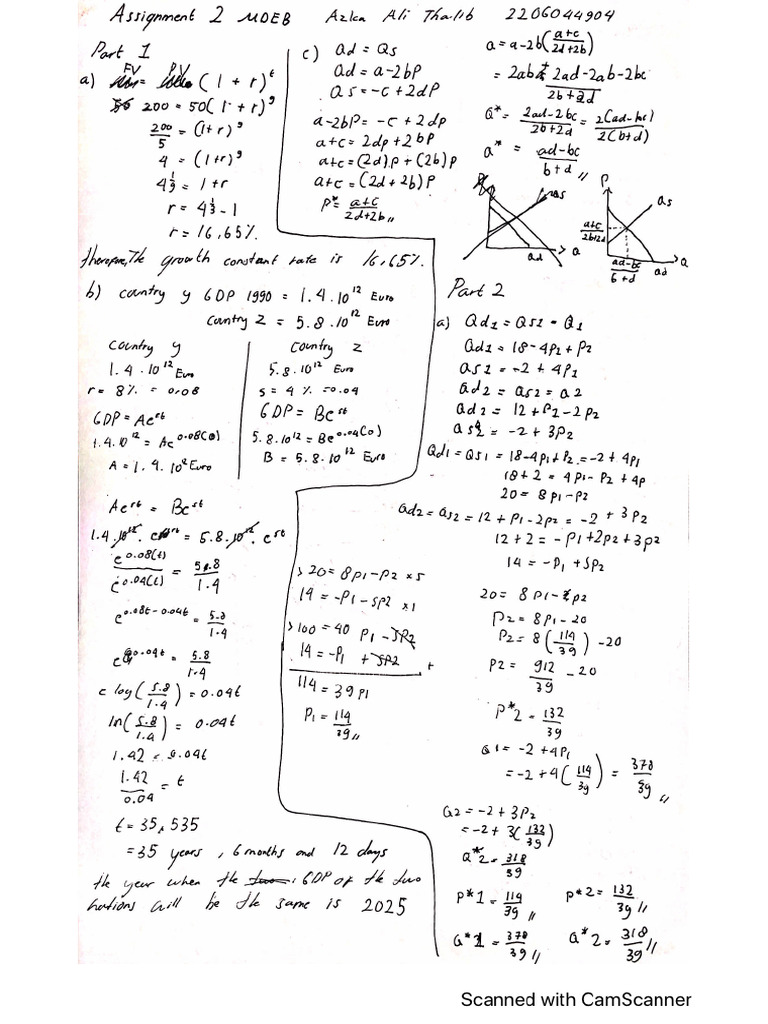 Assignment 2 MDEB Azka Ali Thalib 2206044904
Part 1
a) FV = PV (1 + r)^t
200 = 50(1 + r)^9
200/5 = (1+r)^9
4 = (1+r)^9
4^1/9 = 1+r
r = 4^1/9 - 1
r = 16,65%.
therefore, The growth constant rate is 16,65%.
b) country y GDP 1990 = 1.4.10^12 Euro
country Z = 5.8.10^12 Euro
country y
1.4.10^12 Euro
r = 8% = 0.08
GDP = Ae^rt
1.4.10^12 = Ae^0.08(0)
A = 1.4.10^12 Euro
country z
5.8.10^12 Euro
s = 4% = 0.04
GDP = Be^st
5.8.10^12 = Be^0.04(0)
B = 5.8.10^12 Euro
Ae^rt = Be^st
1.4.10^12. e^rt = 5.8.10^12. e^st
e^0.08(t)/e^0.04(t) = 5.8/1.4
e^0.08t-0.04t = 5.8/1.4
e^0.04t = 5.8/1.4
e log(5.8/1.4) = 0.04t
ln(5.8/1.4) = 0.04t
1.42 = 0.04t
1.42/0.04 = t
t = 35,535
= 35 years, 6 months and 12 days
the year when the GDP of the two
nations will be the same is 2025
c) Qd = Qs
Qd = a-2bP
Qs = -c + 2dP
a-2bP = -c + 2dp
a+c = 2dp + 2bP
a+c = (2d).P + (2b)P
a+c = (2d + 2b)P
P* = a+c/2d+2b //
Q = a-2b(a+c/2d+2b)
= 2ab + 2ad-2ab-2bc/2b+2d
Q* = 2ad-2bc/2b+2d = 2(ad-bc)/2(b+d)
Q* = ad-bc/b+d //
P
Qs
Q
Qd
P
Qs
a+c/2b+2d
ad-bc/b+d
Qd
Q
Part 2
a) Qd1 = Qs1 = Q1
Qd1 = 18-4P1 + P2
Qs1 = -2 + 4P1
Qd2 = Qs2 = Q2
Qd2 = 12 + P1 - 2P2
Qs2 = -2 + 3P2
Qd1 = Qs1 = 18-4P1+P2 = -2 + 4P1
18+2 = 4P1 - P2 + 4P
20 = 8P1-P2
Qd2 = Qs2 = 12 + P1 - 2P2 = -2 + 3P2
12 + 2 = -P1 + 2P2 + 3P2
14 = -P1 + 5P2
> 20 = 8P1-P2 x5
14 = -P1-5P2 x1
> 100 = 40 P1 - 5P2
14 = -P1 + 5P2 +
114 = 39 P1
P1 = 114/39 //
20 = 8P1-P2
P2 = 8P1-20
P2 = 8(114/39) -20
P2 = 912/39 - 20
P*2 = 132/39
Q1 = -2 + 4P1
= -2 + 4(114/39) = 378/39 //
Q2 = -2 + 3P2
= -2 + 3(132/39)
Q*2 = 318/39
P*1 = 114/39 // P*2 = 132/39 //
Q*1 = 378/39 // Q*2 = 318/39 //
Scanned with CamScanner